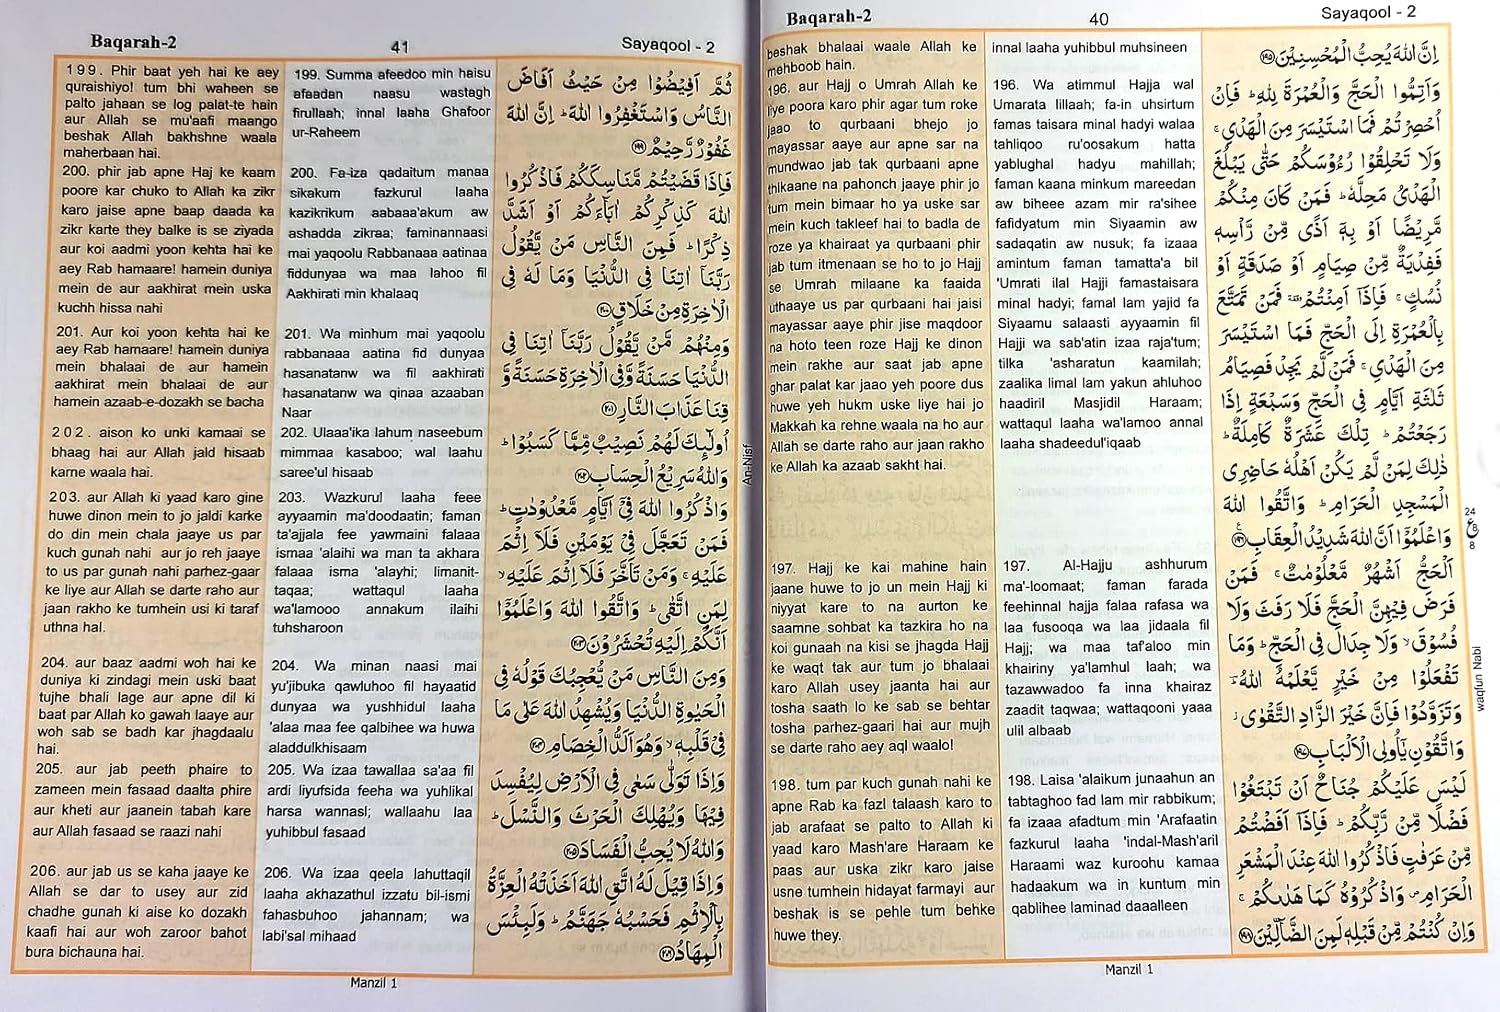 Baqarah-2
40
Sayaqool - 2
beshak bhalaai waale Allah ke
mehboob hain.
196. aur Hajj o Umrah Allah ke
liye poora karo phir agar tum roke
jaao to qurbaani bhejo jo
mayassar aaye aur apne sar na
mundwao jab tak qurbaani apne
thikaane na pahonch jaaye phir jo
tum mein bimaar ho ya uske sar
mein kuch takleef hai to badla de
roze ya khairaat ya qurbaani phir
jab tum itmenaan se ho to jo Hajj
se Umrah milaane ka faaida
uthaaye us par qurbaani hai jaisi
mayassar aaye phir jise maqdoor
na hoto teen roze Hajj ke dinon
mein rakhe aur saat jab apne
ghar palat kar jaao yeh poore dus
huwe yeh hukm uske liye hai jo
Makkah ka rehne waala na ho aur
Allah se darte raho aur jaan rakho
ke Allah ka azaab sakht hai.
197. Hajj ke kai mahine hain
jaane huwe to jo un mein Hajj ki
niyyat kare to na aurton ke
saamne sohbat ka tazkira ho na
koi gunaah na kisi se jhagda Hajj
ke waqt tak aur tum jo bhalaai
karo Allah usey jaanta hai aur
tosha saath lo ke sab se behtar
tosha parhez-gaari hai aur mujh
se darte raho aey aql waalo!
198. tum par kuch gunah nahi ke
apne Rab ka fazl talaash karo to
jab arafaat se palto to Allah ki
yaad karo Mash'are Haraam ke
paas aur uska zikr karo jaise
usne tumhein hidayat farmayi aur
beshak is se pehle tum behke
huwe they.
innal laaha yuhibbul muhsineen
196. Wa atimmul Hajja wal
Umarata lillaah; fa-in uhsirtum
famas taisara minal hadyi walaa
tahliqoo ru'oosakum hatta
yablughal hadyu mahillah;
faman kaana minkum mareedan
aw biheee azam mir ra'sihee
fafidyatum min Siyaamin aw
sadaqatin aw nusuk; fa izaaa
amintum faman tamatta'a bil
'Umrati ilal Hajji famastaisara
minal hadyi; famal lam yajid fa
Siyaamu salaasti ayyaamin fil
Hajji wa sab'atin izaa raja'tum;
tilka 'asharatun kaamilah;
zaalika limal lam yakun ahluhoo
haadiril Masjidil Haraam;
wattaqul laaha wa'lamoo annal
laaha shadeedul'iqaab
197. Al-Hajju ashhurum
ma'-loomaat; faman farada
feehinnal hajja falaa rafasa wa
laa fusooqa wa laa jidaala fil
Hajj; wa maa taf'aloo min
khairiny ya'lamhul laah; wa
tazawwadoo fa inna khairaz
zaadit taqwaa; wattaqooni yaaa
ulil albaab
198. Laisa 'alaikum junaahun an
tabtaghoo fad lam mir rabbikum;
fa izaaa afadtum min 'Arafaatin
fazkurul laaha 'indal-Mash'aril
Haraami waz kuroohu kamaa
hadaakum wa in kuntum min
qablihee laminad daaalleen
اِنَّ اللّٰهَ يُحِبُّ الْمُحْسِنِيْنَ ۝١٩٥
وَاَتِمُّوا الْحَجَّ وَالْعُمْرَةَ لِلّٰهِ ؕ فَاِنْ
اُحْصِرْتُمْ فَمَا اسْتَيْسَرَ مِنَ الْهَدْيِ ۚ
وَلَا تَحْلِقُوْا رُءُوْسَكُمْ حَتّٰى يَبْلُغَ
الْهَدْىُ مَحِلَّهٗ ؕ فَمَنْ كَانَ مِنْكُمْ
مَّرِيْضًا اَوْ بِهٖۤ اَذًى مِّنْ رَّاْسِهٖ
فَفِدْيَةٌ مِّنْ صِيَامٍ اَوْ صَدَقَةٍ اَوْ
نُسُكٍ ۚ فَاِذَاۤ اَمِنْتُمْ ۥ فَمَنْ تَمَتَّعَ
بِالْعُمْرَةِ اِلَى الْحَجِّ فَمَا اسْتَيْسَرَ
مِنَ الْهَدْيِ ۚ فَمَنْ لَّمْ يَجِدْ فَصِيَامُ
ثَلٰثَةِ اَيَّامٍ فِى الْحَجِّ وَسَبْعَةٍ اِذَا
رَجَعْتُمْ ؕ تِلْكَ عَشَرَةٌ كَامِلَةٌ ؕ
ذٰلِكَ لِمَنْ لَّمْ يَكُنْ اَهْلُهٗ حَاضِرِى
الْمَسْجِدِ الْحَرَامِ ؕ وَاتَّقُوا اللّٰهَ
وَاعْلَمُوْۤا اَنَّ اللّٰهَ شَدِيْدُ الْعِقَابِ ۝١٩٦
اَلْحَجُّ اَشْهُرٌ مَّعْلُوْمٰتٌ ۚ فَمَنْ
فَرَضَ فِيْهِنَّ الْحَجَّ فَلَا رَفَثَ وَلَا
فُسُوْقَ ۙ وَلَا جِدَالَ فِى الْحَجِّ ؕ وَمَا
تَفْعَلُوْا مِنْ خَيْرٍ يَّعْلَمْهُ اللّٰهُ ؔ
وَتَزَوَّدُوْا فَاِنَّ خَيْرَ الزَّادِ التَّقْوٰى ۚ
وَاتَّقُوْنِ يٰۤاُولِى الْاَلْبَابِ ۝١٩٧
لَيْسَ عَلَيْكُمْ جُنَاحٌ اَنْ تَبْتَغُوْا
فَضْلًا مِّنْ رَّبِّكُمْ ؕ فَاِذَاۤ اَفَضْتُمْ
مِّنْ عَرَفٰتٍ فَاذْكُرُوا اللّٰهَ عِنْدَ الْمَشْعَرِ
الْحَرَامِ ۪ وَاذْكُرُوْهُ كَمَا هَدٰىكُمْ ۚ
وَاِنْ كُنْتُمْ مِّنْ قَبْلِهٖ لَمِنَ الضَّآلِّيْنَ ۝١٩٨
24
ع
8
8
waqfun Nabi
Manzil 1
Baqarah-2
41
Sayaqool - 2
199. Phir baat yeh hai ke aey
quraishiyo! tum bhi waheen se
palto jahaan se log palat-te hain
aur Allah se mu'aafi maango
beshak Allah bakhshne waala
maherbaan hai.
200. phir jab apne Haj ke kaam
poore kar chuko to Allah ka zikr
karo jaise apne baap daada ka
zikr karte they balke is se ziyada
aur koi aadmi yoon kehta hai ke
aey Rab hamaare! hamein duniya
mein de aur aakhirat mein uska
kuchh hissa nahi
201. Aur koi yoon kehta hai ke
aey Rab hamaare! hamein duniya
mein bhalaai de aur hamein
aakhirat mein bhalaai de aur
hamein azaab-e-dozakh se bacha
202. aison ko unki kamaai se
bhaag hai aur Allah jald hisaab
karne waala hai.
203. aur Allah ki yaad karo gine
huwe dinon mein to jo jaldi karke
do din mein chala jaaye us par
kuch gunah nahi aur jo reh jaaye
to us par gunah nahi parhez-gaar
ke liye aur Allah se darte raho aur
jaan rakho ke tumhein usi ki taraf
uthna hai.
204. aur baaz aadmi woh hai ke
duniya ki zindagi mein uski baat
tujhe bhali lage aur apne dil ki
baat par Allah ko gawah laaye aur
woh sab se badh kar jhagdaalu
hai.
205. aur jab peeth phaire to
zameen mein fasaad daalta phire
aur kheti aur jaanein tabah kare
aur Allah fasaad se raazi nahi
206. aur jab us se kaha jaaye ke
Allah se dar to usey aur zid
chadhe gunah ki aise ko dozakh
kaafi hai aur woh zaroor bahot
bura bichauna hai.
199. Summa afeedoo min haisu
afaadan naasu wastagh
firullaah; innal laaha Ghafoor
ur-Raheem
200. Fa-iza qadaitum manaa
sikakum fazkurul laaha
kazikrikum aabaaa'akum aw
ashadda zikraa; faminannaasi
mai yaqoolu Rabbanaaa aatinaa
fiddunyaa wa maa lahoo fil
Aakhirati min khalaaq
201. Wa minhum mai yaqoolu
rabbanaaa aatina fid dunyaa
hasanatanw wa fil aakhirati
hasanatanw wa qinaa azaaban
Naar
202. Ulaaa'ika lahum naseebum
mimmaa kasaboo; wal laahu
saree'ul hisaab
203. Wazkurul laaha feee
ayyaamin ma'doodaatin; faman
ta'ajjala fee yawmaini falaaa
ismaa 'alaihi wa man ta akhara
falaaa isma 'alayhi; limanit-
taqaa; wattaqul laaha
wa'lamooo annakum ilaihi
tuhsharoon
204. Wa minan naasi mai
yu'jibuka qawluhoo fil hayaatid
dunyaa wa yushhidul laaha
'alaa maa fee qalbihee wa huwa
aladdulkhisaam
205. Wa izaa tawallaa sa'aa fil
ardi liyufsida feeha wa yuhlikal
harsa wannasl; wallaahu laa
yuhibbul fasaad
206. Wa izaa qeela lahuttaqil
laaha akhazathul izzatu bil-ismi
fahasbuhoo jahannam; wa
labi'sal mihaad
ثُمَّ اَفِيْضُوْا مِنْ حَيْثُ اَفَاضَ
النَّاسُ وَاسْتَغْفِرُوا اللّٰهَ ؕ اِنَّ اللّٰهَ
غَفُوْرٌ رَّحِيْمٌ ۝١٩٩
فَاِذَا قَضَيْتُمْ مَّنَاسِكَكُمْ فَاذْكُرُوا
اللّٰهَ كَذِكْرِكُمْ اٰبَآءَكُمْ اَوْ اَشَدَّ
ذِكْرًا ؕ فَمِنَ النَّاسِ مَنْ يَّقُوْلُ
رَبَّنَاۤ اٰتِنَا فِى الدُّنْيَا وَمَا لَهٗ فِى
الْاٰخِرَةِ مِنْ خَلَاقٍ ۝٢٠٠
وَمِنْهُمْ مَّنْ يَّقُوْلُ رَبَّنَاۤ اٰتِنَا فِى
الدُّنْيَا حَسَنَةً وَّفِى الْاٰخِرَةِ حَسَنَةً وَّ
قِنَا عَذَابَ النَّارِ ۝٢٠١
اُولٰٓئِكَ لَهُمْ نَصِيْبٌ مِّمَّا كَسَبُوْا ؕ
وَاللّٰهُ سَرِيْعُ الْحِسَابِ ۝٢٠٢
وَاذْكُرُوا اللّٰهَ فِىْۤ اَيَّامٍ مَّعْدُوْدٰتٍ ؕ
فَمَنْ تَعَجَّلَ فِىْ يَوْمَيْنِ فَلَاۤ اِثْمَ
عَلَيْهِ ۚ وَمَنْ تَاَخَّرَ فَلَاۤ اِثْمَ عَلَيْهِ ۙ
لِمَنِ اتَّقٰى ؕ وَاتَّقُوا اللّٰهَ وَاعْلَمُوْۤا
اَنَّكُمْ اِلَيْهِ تُحْشَرُوْنَ ۝٢٠٣
وَمِنَ النَّاسِ مَنْ يُّعْجِبُكَ قَوْلُهٗ فِى
الْحَيٰوةِ الدُّنْيَا وَيُشْهِدُ اللّٰهَ عَلٰى مَا
فِىْ قَلْبِهٖ ۙ وَهُوَ اَلَدُّ الْخِصَامِ ۝٢٠٤
وَاِذَا تَوَلّٰى سَعٰى فِى الْاَرْضِ لِيُفْسِدَ
فِيْهَا وَيُهْلِكَ الْحَرْثَ وَالنَّسْلَ ؕ
وَاللّٰهُ لَا يُحِبُّ الْفَسَادَ ۝٢٠٥
وَاِذَا قِيْلَ لَهُ اتَّقِ اللّٰهَ اَخَذَتْهُ الْعِزَّةُ
بِالْاِثْمِ فَحَسْبُهٗ جَهَنَّمُ ؕ وَلَبِئْسَ
الْمِهَادُ ۝٢٠٦
An-Nisf
Manzil 1